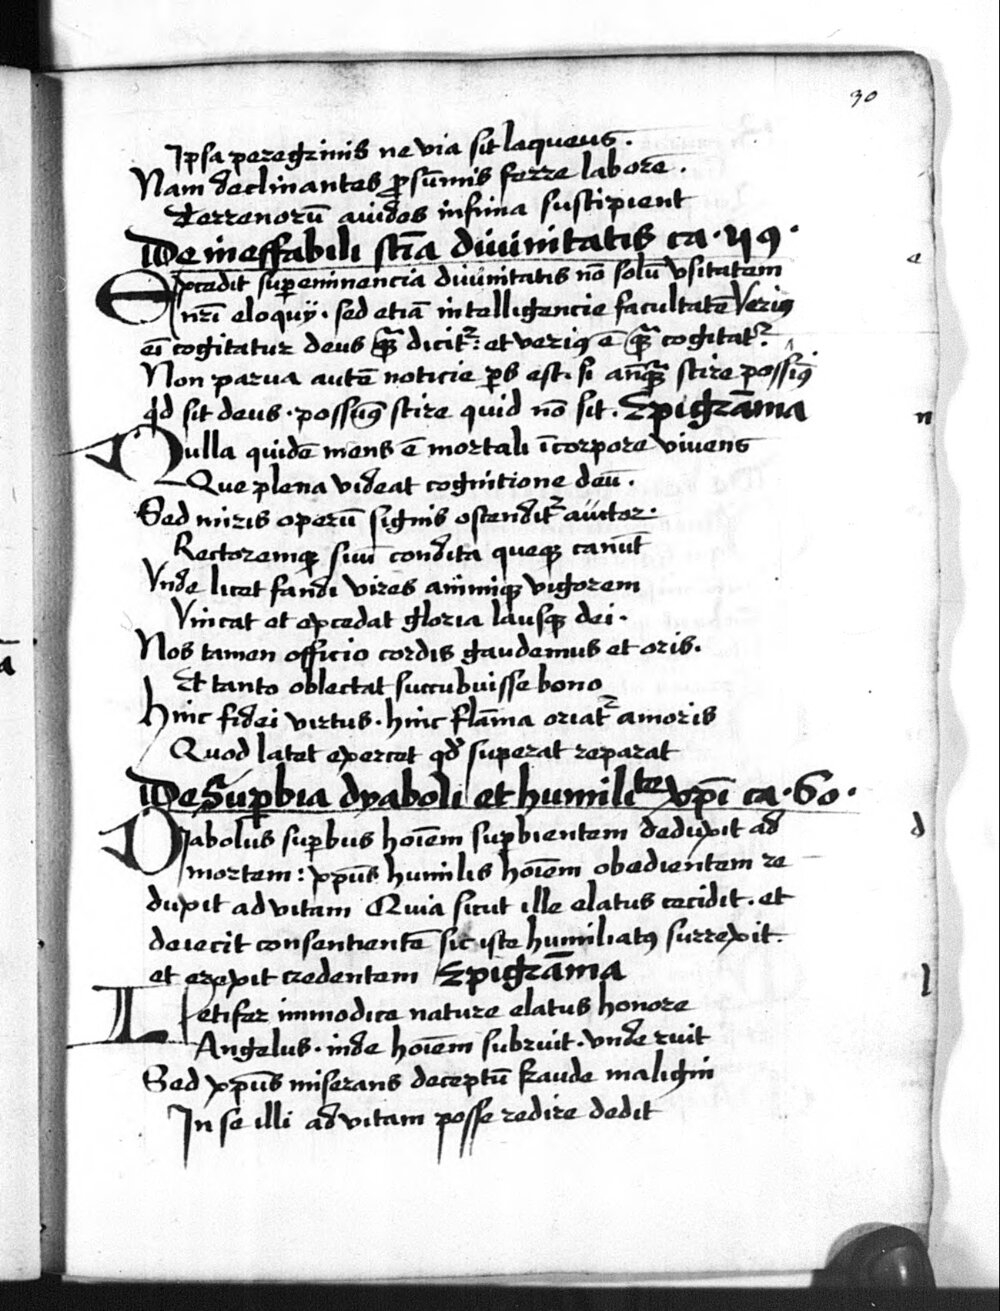 30
Ipsa peregrinis ne via sit laqueus.
Nam declinantes p̱sūmis ferre labore.
Terrenorū avidos infima suscipient
De ineffabili sc̄ia divinitatis ca. 59.
Excedit supeminencia divinitatis nō solū usitatam
nr̄i eloquij. sed etiā intelligencie facultatē Verius
ei cogitatur deus q̄ dicit᷑: et verius ē q̄ cogitat᷑.
Non parva autē noticie ps est. si anq̄ scire possim9
qd sit deus. possum9 scire quid nō sit. Epigrāma
Nulla quidē mens ē mortali ī corpore vivens
Que plena videat cognitione deū.
Sed miris operū signis ostendit᷑ auctor.
Rectoremq̄ suū condita queq̄ canūt
Unde licet fandi vires animiq̄ vigorem
Vincat et excedat gloria lausq̄ dei.
Nos tamen officio cordis gaudemus et oris.
Et tanto oblectat succubuisse bono
Hinc fidei virtus. hinc flāma oriat᷑ amoris
Quod latet exercet qd superat reparat
De Supbia dyaboli et humilitate xp̄i ca. 60.
Diabolus supbus hoīem supbientem deduxit ad
mortem: xp̄us humilis hoīem obedientem re
duxit ad vitam Quia sicut ille elatus cecidit. et
deiecit consentientē sic iste humiliat9 surrexit.
et erexit credentem Epigrāma
Letifer immodice nature elatus honore
Angelus. inde hoīem subruit. unde ruit
Sed xp̄us miserans deceptū fraude maligni
In se illi ad vitam posse redire dedit
e
n
d
l